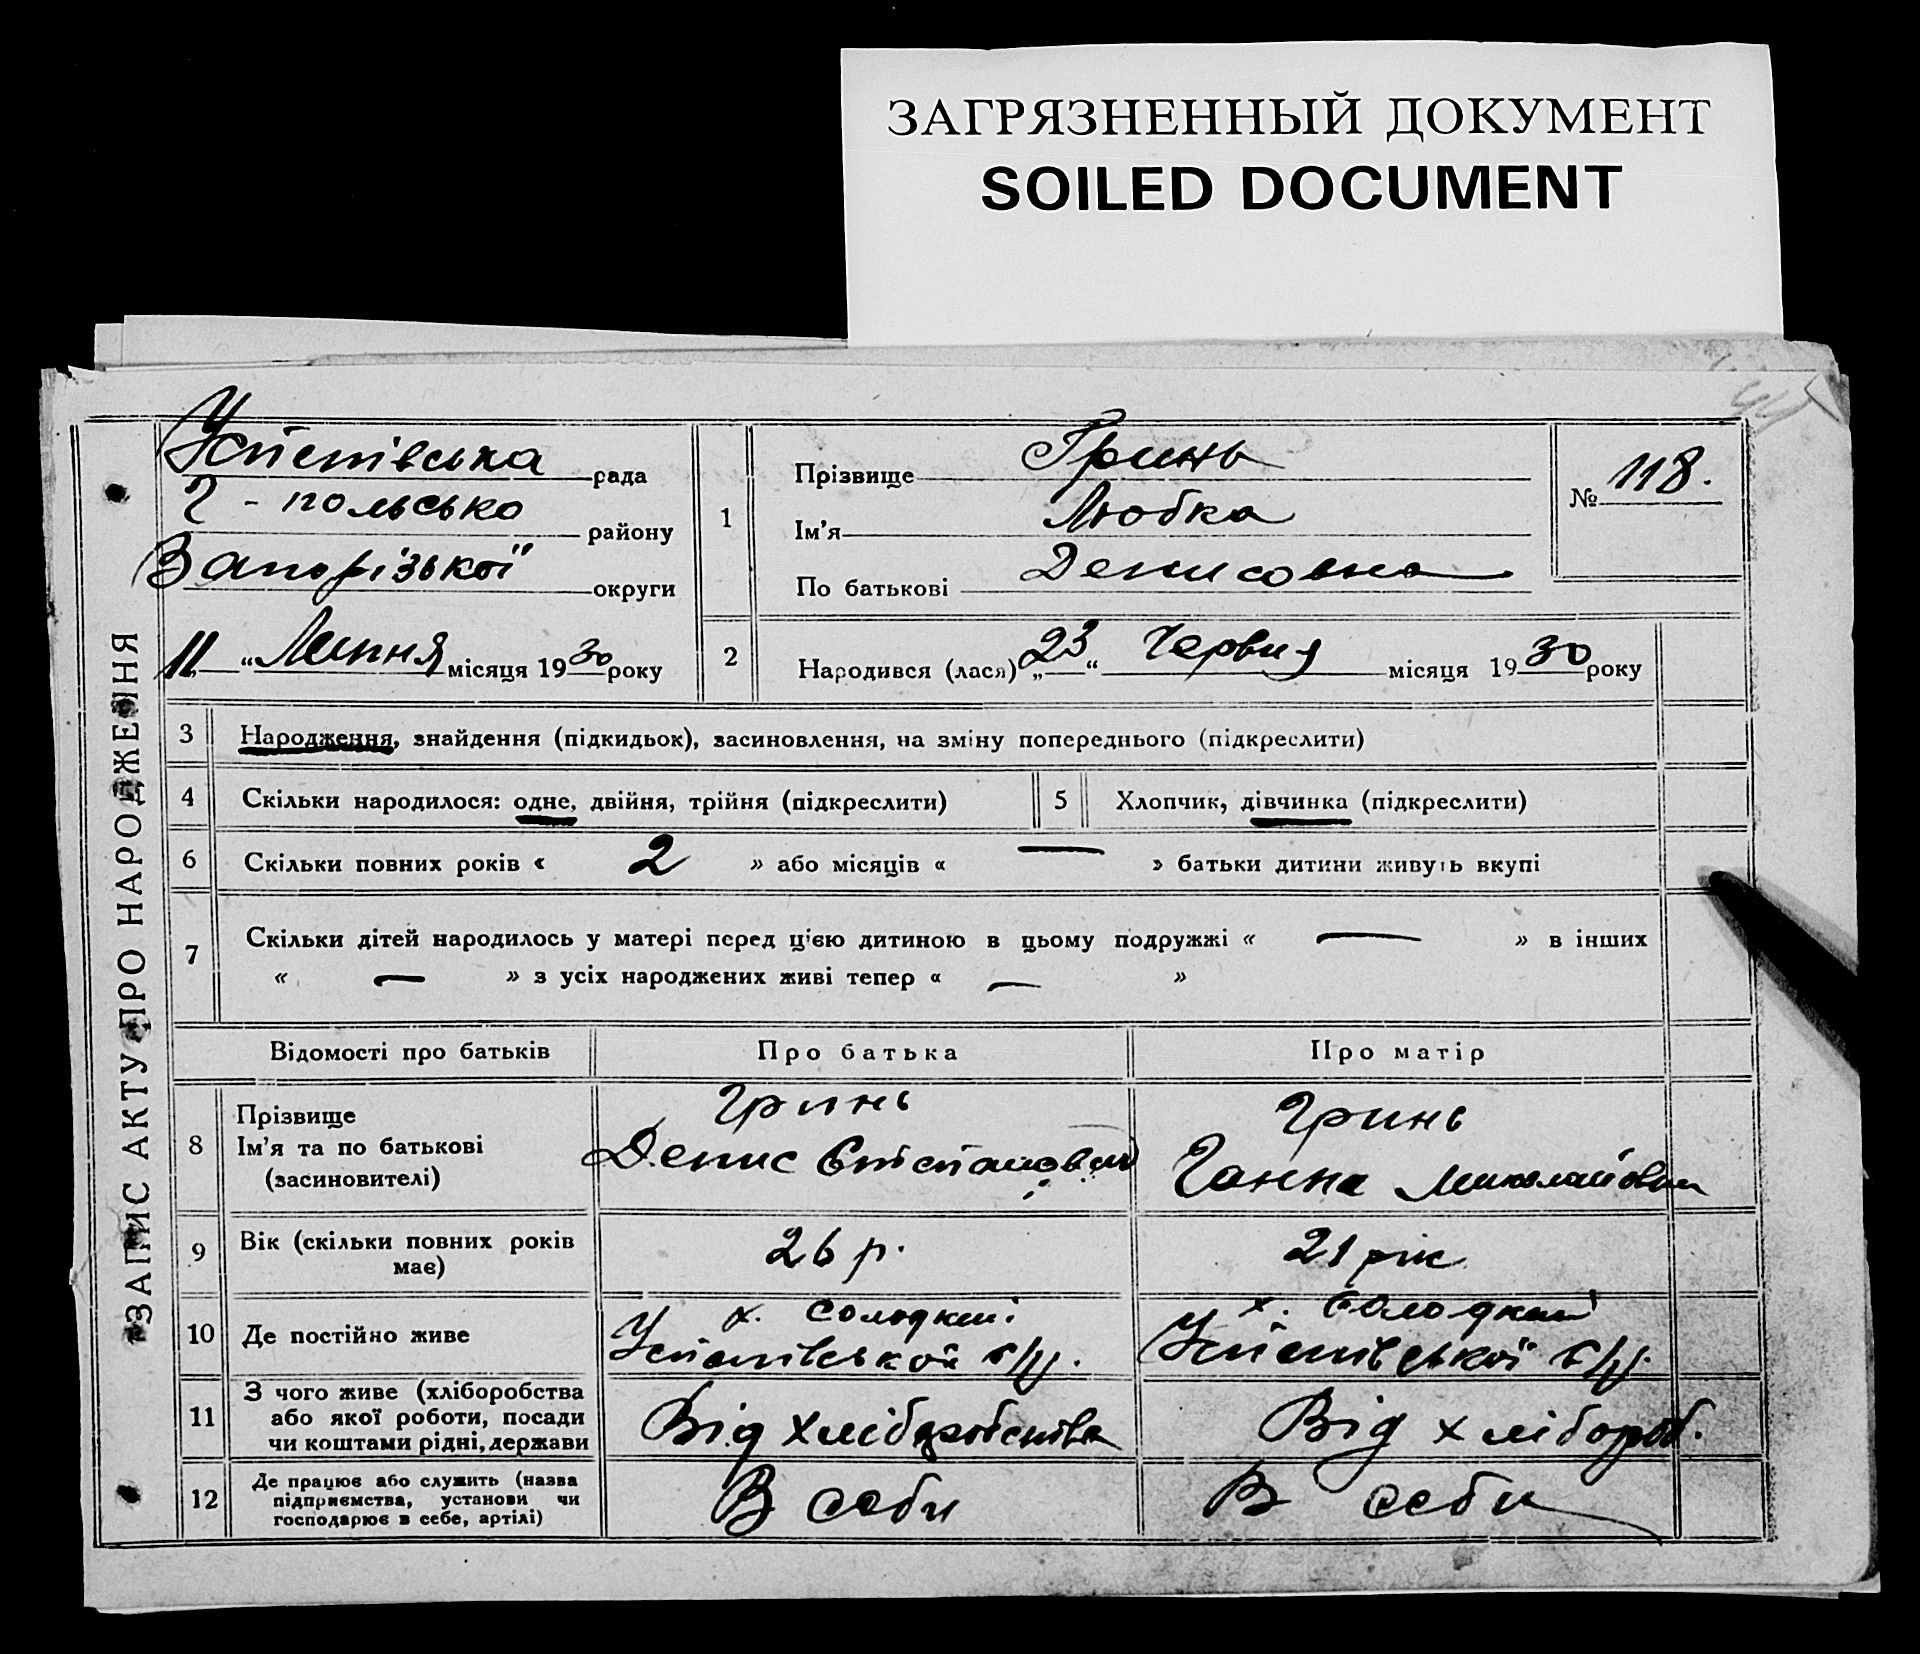 ЗАГРЯЗНЕННЫЙ ДОКУМЕНТ
SOILED DOCUMENT
ЗАПИС АКТУ ПРО НАРОДЖЕННЯ
Успенівська рада
Г-польсько району
Запорізької округи
11 " Липня місяця 1930 року
1
Прізвище Гринь
Ім'я Любка
По батькові Денисовна
№ 118.
2
Народився (лася) „23" Червня місяця 1930 року
3 Народження, знайдення (підкидьок), засиновлення, на зміну попереднього (підкреслити)
4 Скільки народилося: одне, двійня, трійня (підкреслити)
5 Хлопчик, дівчинка (підкреслити)
6 Скільки повних років « 2 » або місяців « — » батьки дитини живуть вкупі
7 Скільки дітей народилось у матері перед цією дитиною в цьому подружжі « — » в інших
« — » з усіх народжених живі тепер « — »
Відомості про батьків Про батька Про матір
8 Прізвище
Ім'я та по батькові
(засиновителі)
Гринь
Денис
Гринь
Ганна
9 Вік (скільки повних років
має)
26 р.
21 рік
10 Де постійно живе
х. Солодкий
Успенівської с/р.
х. Солодкий
Успенівської с/р.
11 З чого живе (хліборобства
або якої роботи, посади
чи коштами рідні, держави
Від хліборобства
Від хлібороб.
12 Де працює або служить (назва
підприємства, установи чи
господарює в себе, артілі)
В себи
В себи